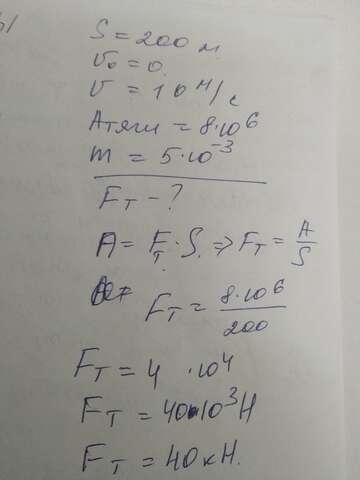 S = 200 м
v₀ = 0
v = 10 м/с
Aтяги = 8·10⁶
m = 5·10⁻³
Fт - ?
A = Fт · S. => Fт = A/S
Fт = 8·10⁶/200
Fт = 4 ·10⁴
Fт = 40·10³ Н
Fт = 40 кН.